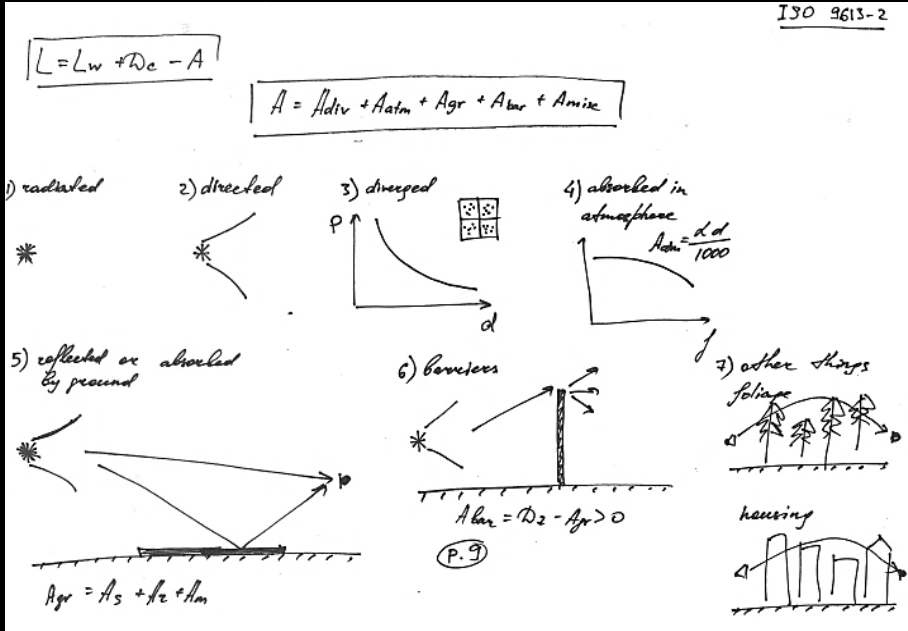 ISO 9613-2
L = Lw + Dc - A
A = Adiv + Aatm + Agr + Abar + Amisc
1) radiated
2) directed
3) diverged
P
d
4) absorbed in
atmosphere
Aatm = αd/1000
f
5) reflected or absorbed
by ground
Agr = As + Ar + Am
6) barriers
Abar = Dz - Agr > 0
P. 9
7) other things
foliage
housing